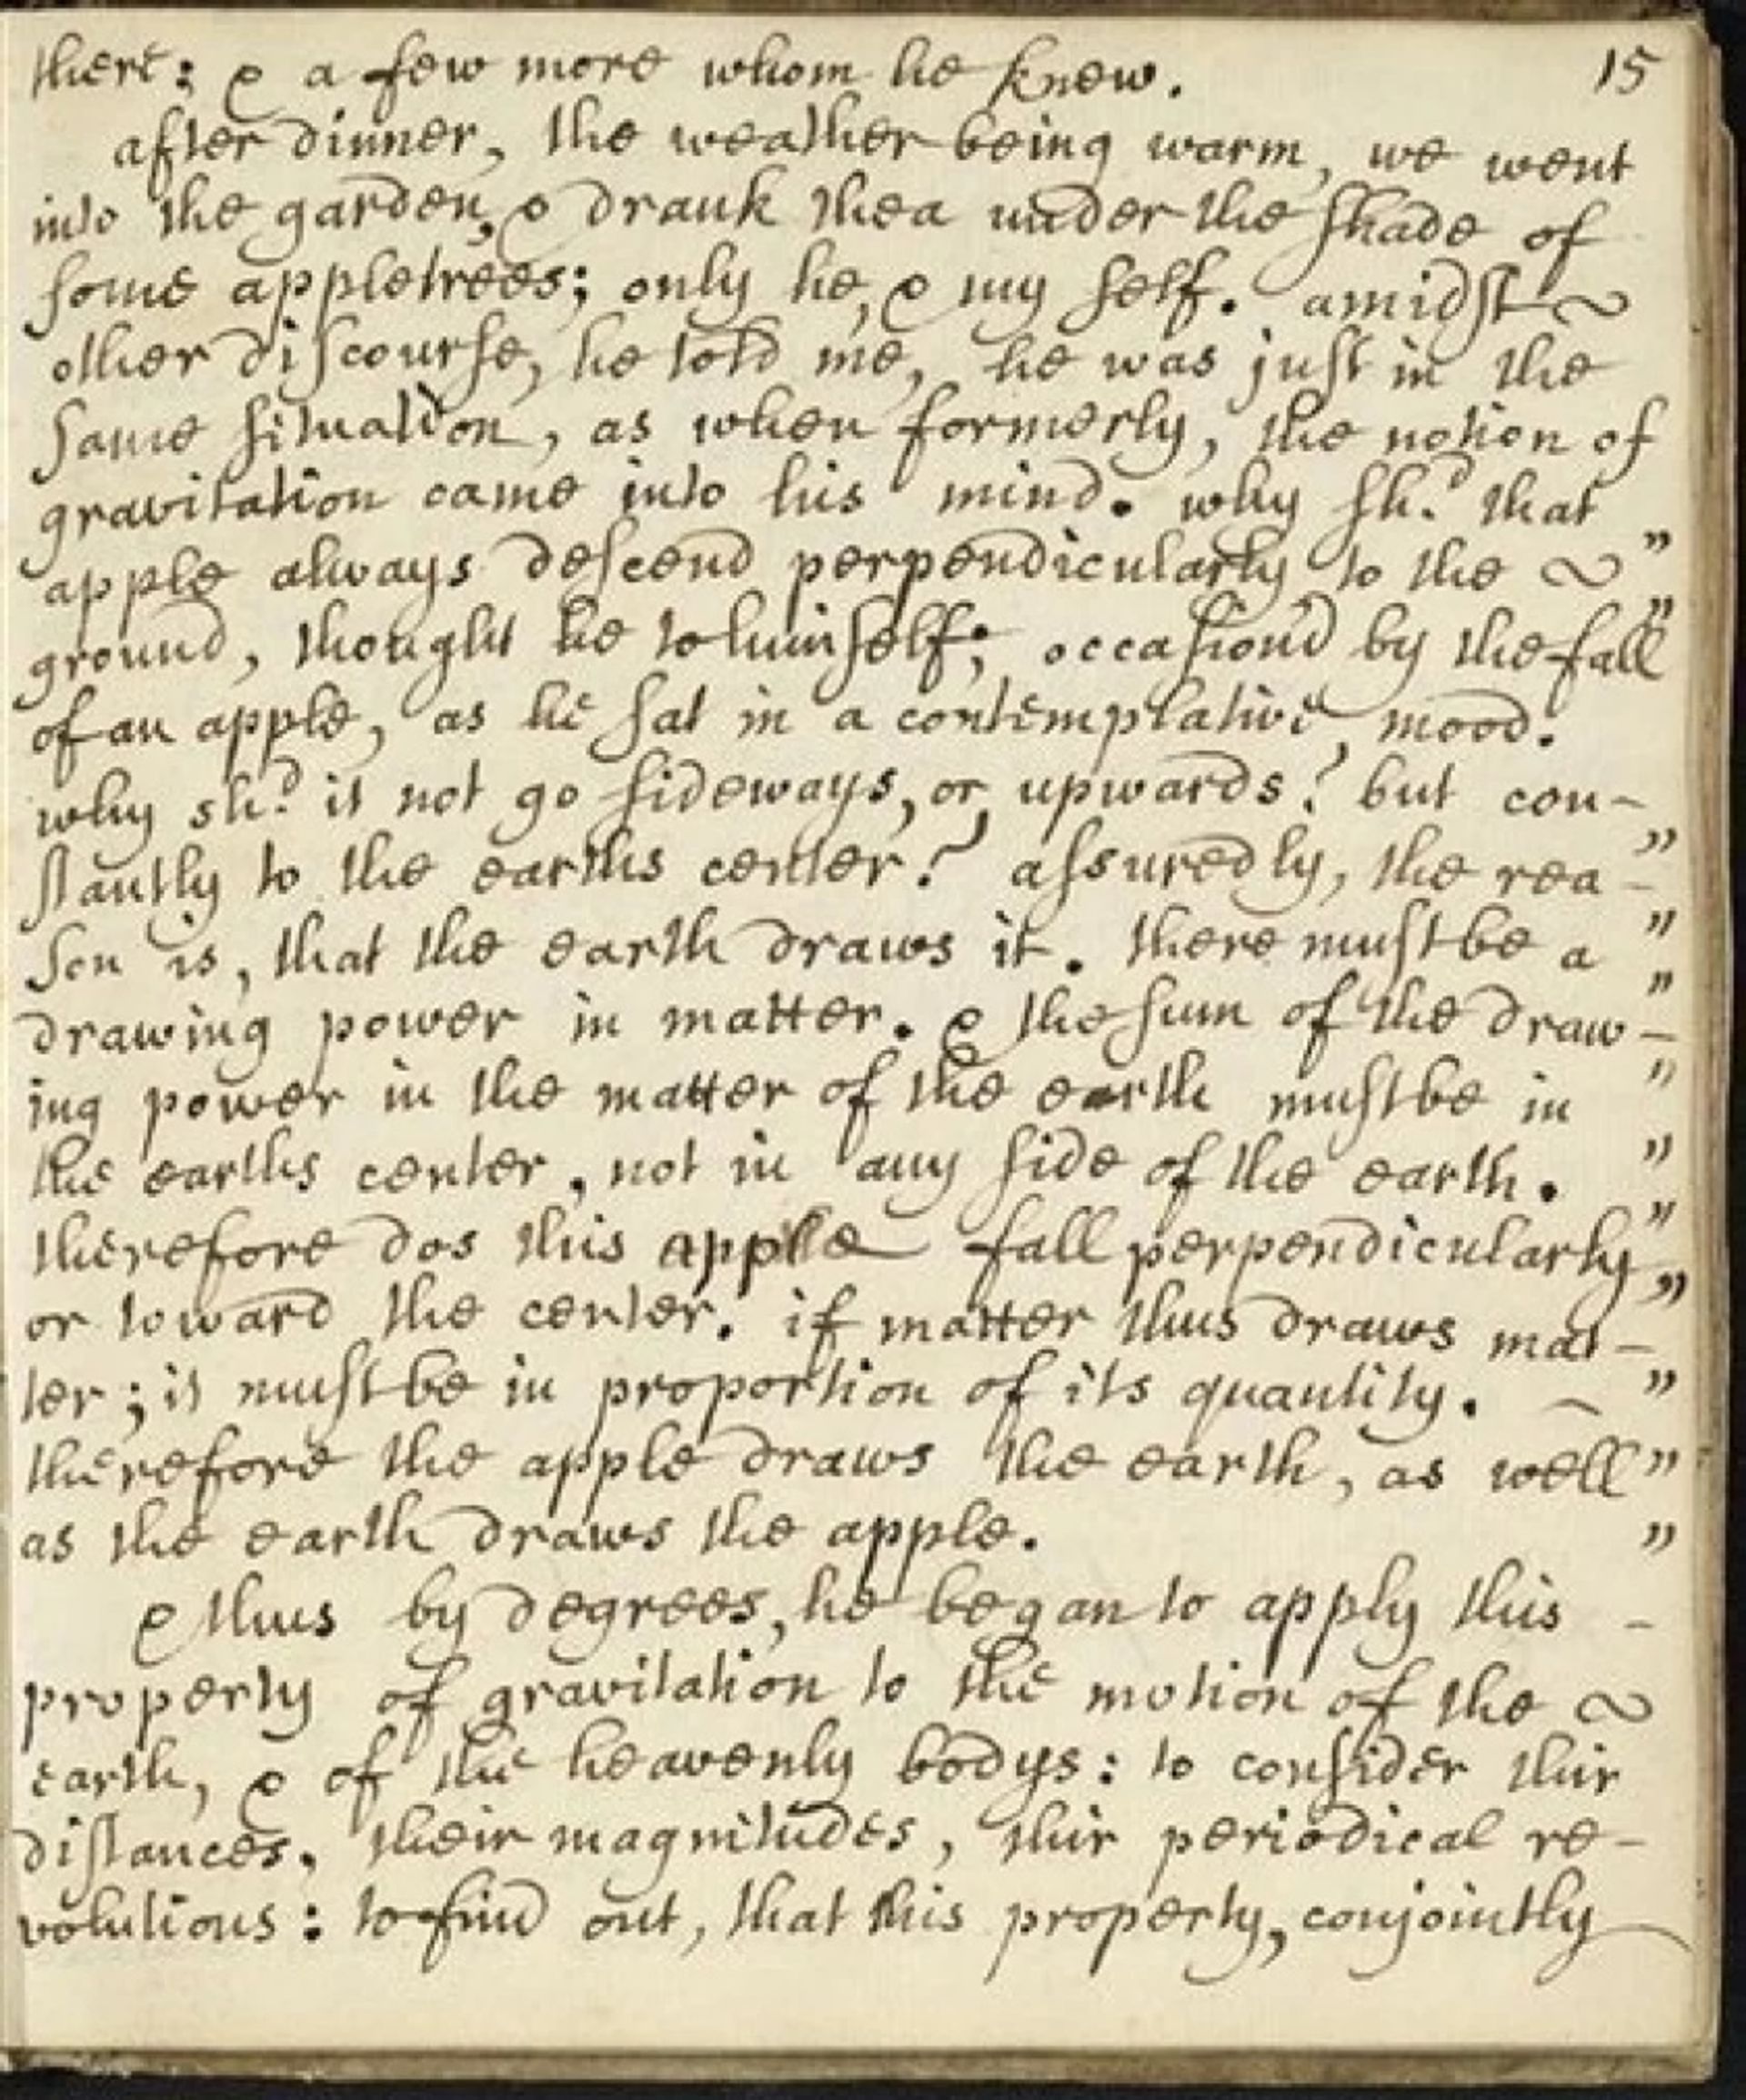 there; & a few more whom he knew. 15
after dinner, the weather being warm, we went
into the garden, & drank thea under the shade of
some appletrees; only he, & my self. amidst
other discourse, he told me, he was just in the
same situation, as when formerly, the notion of
gravitation came into his mind. why shd. that
apple always descend perpendicularly to the "
ground, thought he to himself; occasion'd by the fall "
of an apple, as he sat in a contemplative mood.
why shd. it not go sideways, or upwards? but con-
stantly to the earths center? assuredly, the rea- "
son is, that the earth draws it. there must be a "
drawing power in matter. & the sum of the draw- "
ing power in the matter of the earth must be in "
the earths center, not in any side of the earth. "
therefore dos this apple fall perpendicularly "
or toward the center. if matter thus draws mat- "
ter; it must be in proportion of its quantity. "
therefore the apple draws the earth, as well "
as the earth draws the apple. "
& thus by degrees, he began to apply this -
property of gravitation to the motion of the
earth, & of the heavenly bodys: to consider thir
distances, their magnitudes, thir periodical re-
volutions: to find out, that this property, conjointly